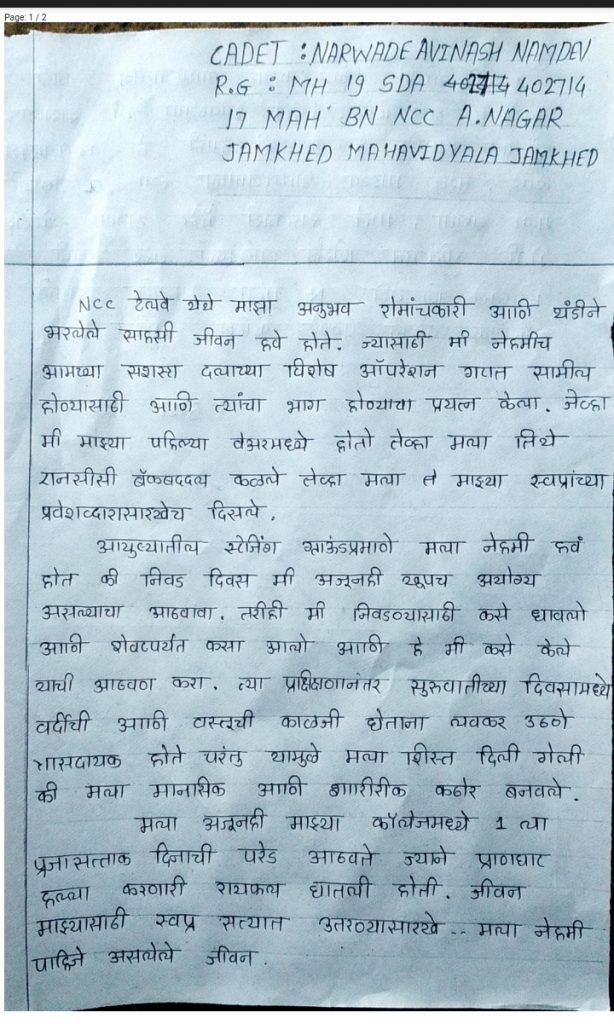 Page: 1 / 2
CADET : NARWADE AVINASH NAMDEV
R.G : MH 19 SDA 402714
17 MAH BN NCC A.NAGAR
JAMKHED MAHAVIDYALA JAMKHED
NCC टेलवे येथे माझा अनुभव रोमांचकारी आणि थंडीने
भरलेले साहसी जीवन हवे होते. ज्यासाठी मी नेहमीच
आमच्या सशस्त्र दलाच्या विशेष ऑपरेशन गटात सामील
होण्यासाठी आणि त्यांचा भाग होण्याचा प्रयत्न केला. जेव्हा
मी माझ्या पहिल्या वेअरमध्ये होतो तेव्हा मला तिथे
एनसीसी बॅकबददल कळले तेव्हा मला ते माझ्या स्वप्नांच्या
प्रवेशव्दारासारखेच दिसले.
आयुष्यातील स्टेनिंग साऊंडप्रमाणे मला नेहमी हवं
होत की निवड दिवस मी अजूनही खूपच अयोग्य
असल्याचा आठवावा. तरीही मी निवडण्यासाठी कसे धावलो
आणि शेवटपर्यंत कसा आलो आणि हे मी कसे केले
याची आठवण करा. त्या प्रक्षिक्षणानंतर सुरूवातीच्या दिवसामध्ये
वर्दीची आणि वस्तूची काळजी घेताना लवकर उठणे
त्रासदायक होते परंतु यामुळे मला शिस्त दिली गेली
की मला मानासिक आणि शारीरीक कठोर बनवले.
मला अजूनही माझ्या कॉलेजमध्ये 1 ला
प्रजासत्ताक दिनाची परेड आठवते ज्याने प्राणघाट
हल्ला करणारी रायफल घातली होती. जीवन
माझ्यासाठी स्वप्न सत्यात उतरण्यासारखे .. मला नेहमी
पाहिजे असलेले जीवन.